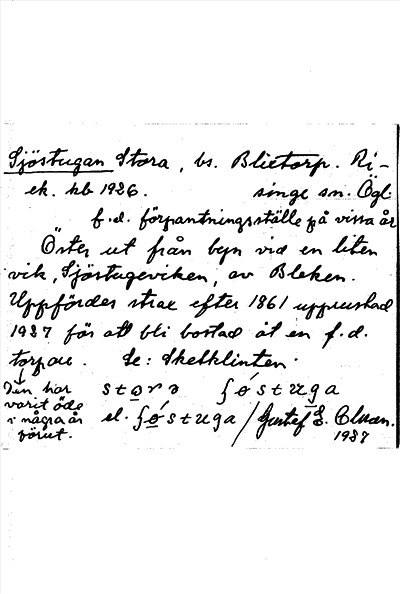 Sjöstugan Stora, bs. Blietorp. Ri-
ek. kb 1926. singe sn. Ögl.
f.d. förpantningsställe på vissa år
Öster ut från byn vid en liten
vik, Sjöstugeviken, av Bleken.
Uppfördes strax efter 1861 upprustad
1937 för att bli bostad åt en f.d.
torpare. Se: Sketklinten.
Den har
varit öde
i några år
förut.
storə ʃøstuga
el. ʃøstuga / Gustaf E. Clason.
1937